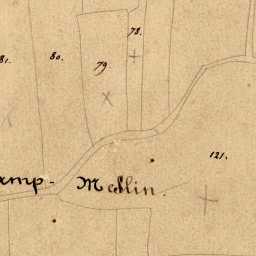 78.
80.
79.
81.
121.
amp - Medlin.